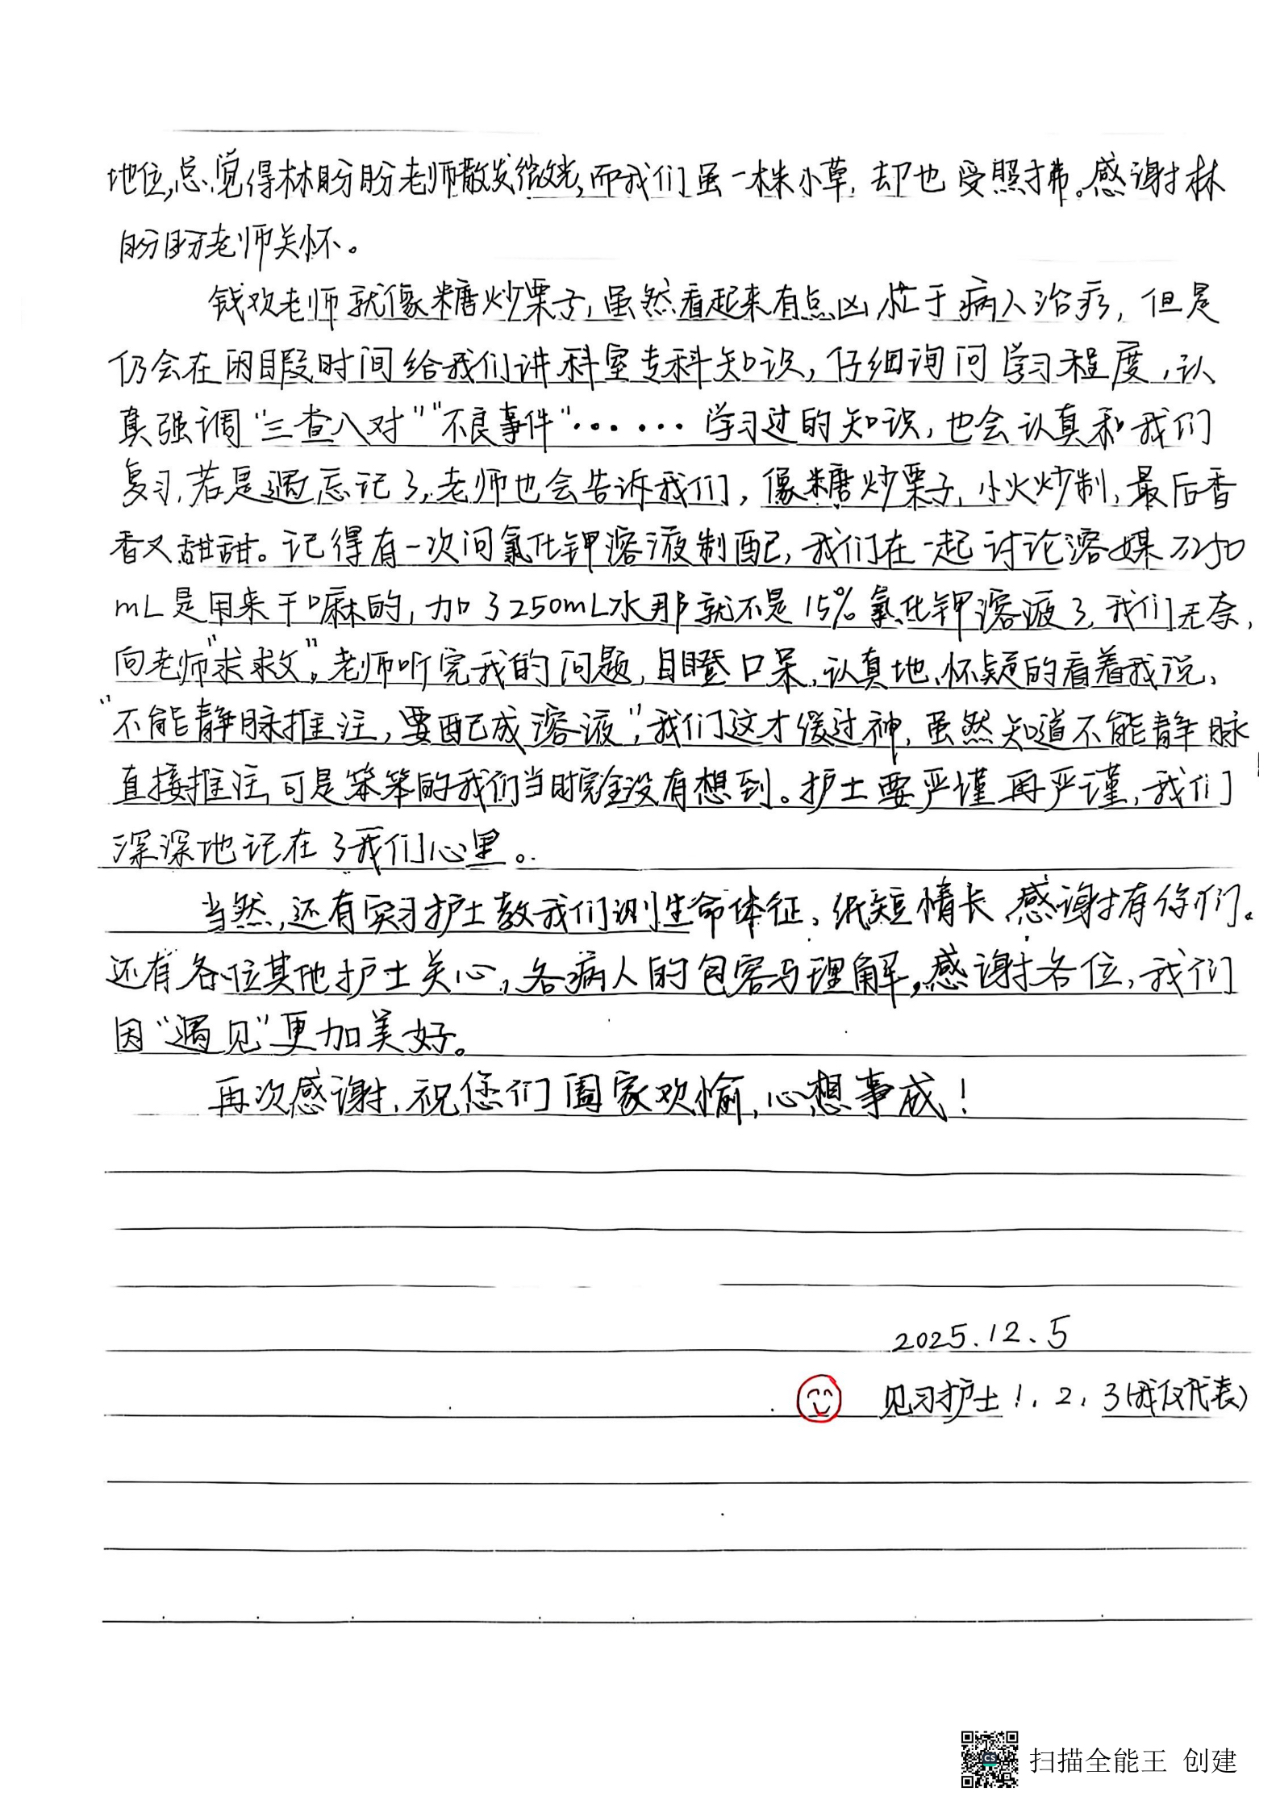 地位,总觉得林盼盼老师散发微光,而我们虽一株小草,却也受照拂。感谢林
盼盼老师关怀。
钱欢老师就像糖炒栗子,虽然看起来有点凶,忙于病人治疗,但是
仍会在闲暇时间给我们讲科室专科知识,仔细询问学习程度,认
真强调“三查八对”“不良事件”……学习过的知识,也会认真和我们
复习,若是遇忘记了,老师也会告诉我们,像糖炒栗子,小火炒制,最后香
香又甜甜。记得有一次问氯化钾溶液制配,我们在一起讨论溶媒≥250
mL是用来干嘛的,加了250mL水那就不是15%氯化钾溶液了,我们无奈,
向老师“求救”。老师听完我的问题,目瞪口呆,认真地、怀疑的看着我说,
“不能静脉推注,要配成溶液”,我们这才缓过神,虽然知道不能静脉
直接推注,可是笨笨的我们当时完全没有想到。护士要严谨再严谨,我们
深深地记在了我们心里。
当然,还有实习护士教我们测生命体征,纸短情长,感谢有你们。
还有各位其他护士关心,各病人的包容与理解,感谢各位,我们
因“遇见”更加美好。
再次感谢,祝您们阖家欢愉,心想事成!
2025.12.5
见习护士1,2,3(我仅代表)
扫描全能王 创建